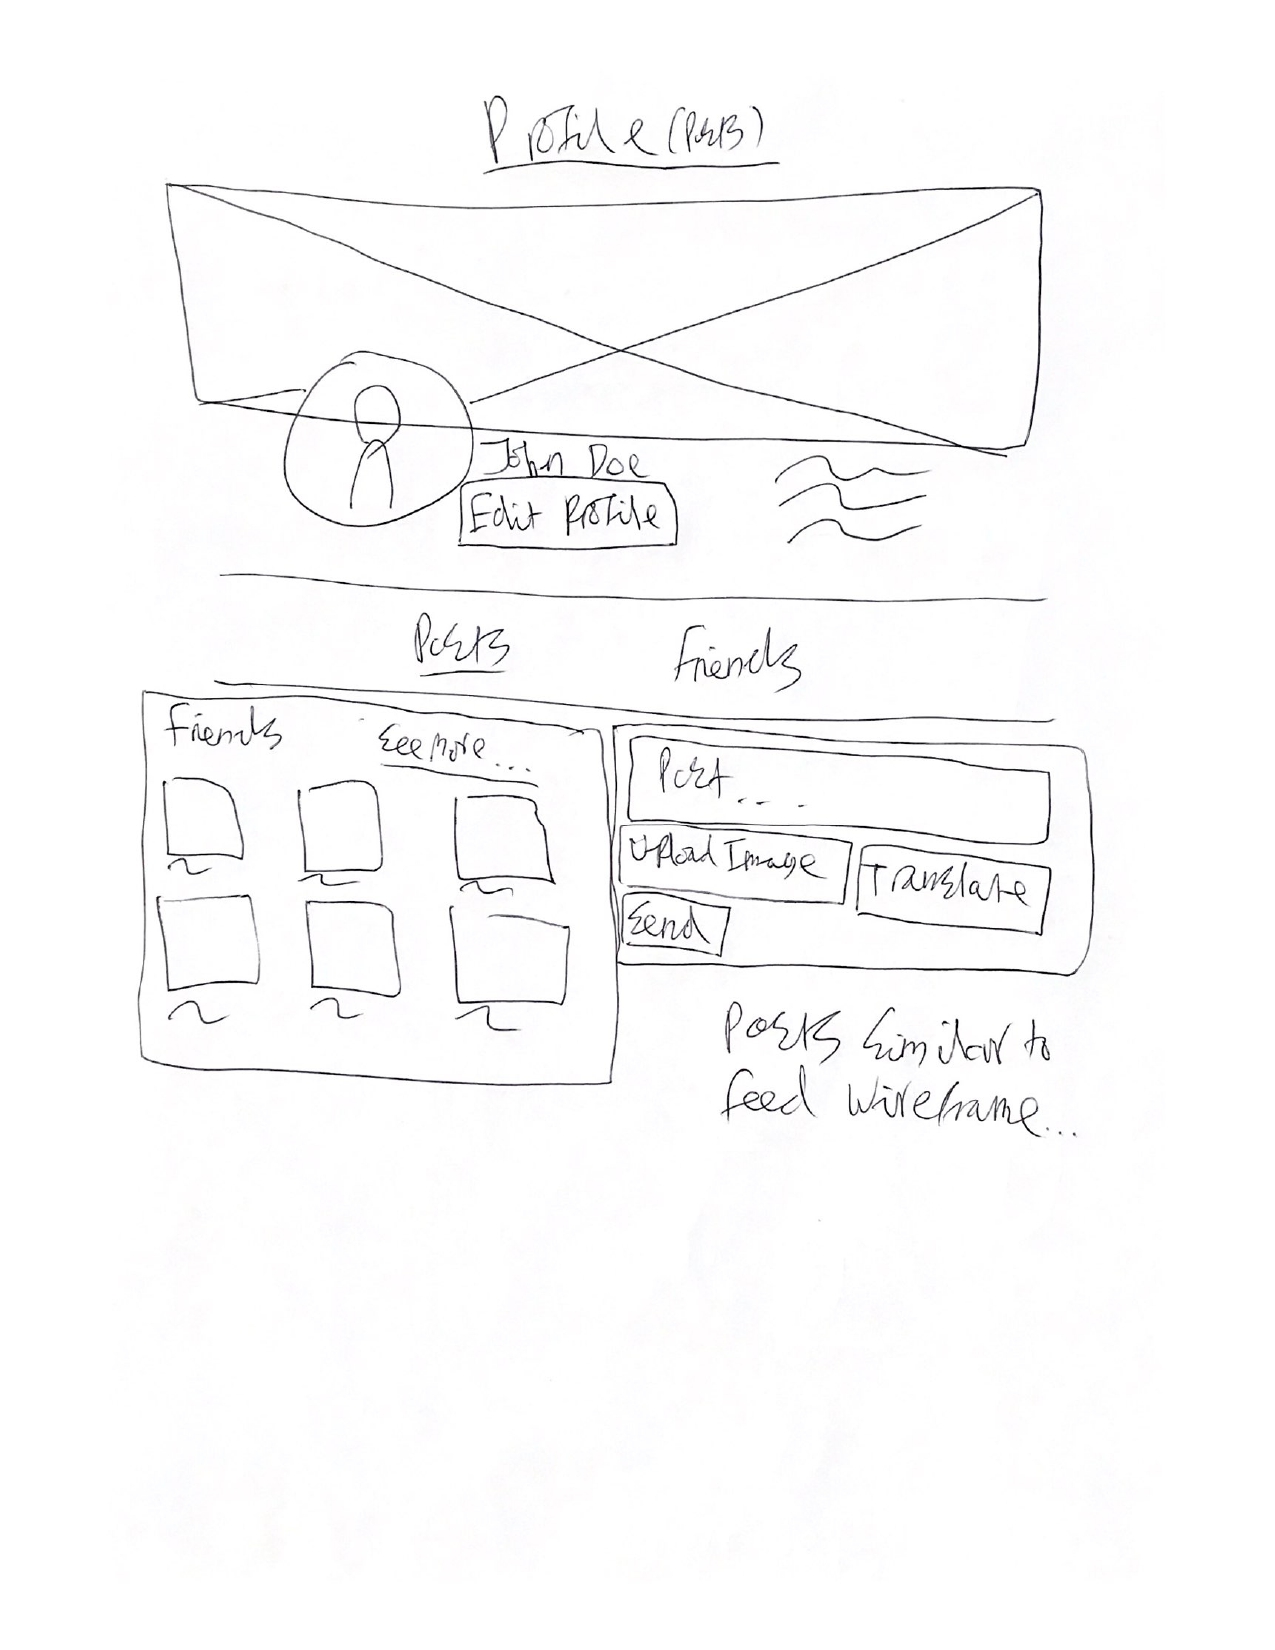 Profile
John Doe
Edit Profile
Posts Friends
Friends See More...
Post....
Upload Image Translate
Send
Posts Similar to
feed wireframe...